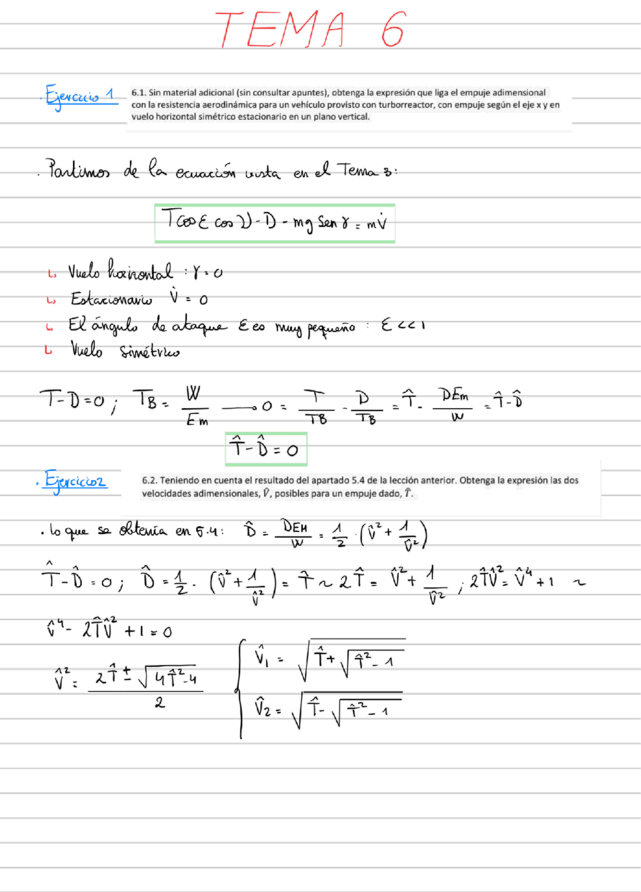 TEMA 6
Ejercicio 1
6.1. Sin material adicional (sin consultar apuntes), obtenga la expresión que liga el empuje adimensional
con la resistencia aerodinámica para un vehículo provisto con turborreactor, con empuje según el eje x y en
vuelo horizontal simétrico estacionario en un plano vertical.
. Partimos de la ecuación vista en el Tema 3:
T cos ε cos ν - D - mg sen γ = m V̇
↳ Vuelo horizontal : γ = 0
↳ Estacionario V̇ = 0
↳ El ángulo de ataque ε es muy pequeño : ε << 1
↳ Vuelo simétrico
T - D = 0 ; T_B = W/Em → 0 = T/T_B - D/T_B = T̂ - DEm/W = T̂ - D̂
T̂ - D̂ = 0
. Ejercicio 2
6.2. Teniendo en cuenta el resultado del apartado 5.4 de la lección anterior. Obtenga la expresión las dos
velocidades adimensionales, V̂, posibles para un empuje dado, T̂.
. lo que se obtenía en 5.4: D̂ = DEM/W = 1/2 · (V̂² + 1/V̂²)
T̂ - D̂ = 0 ; D̂ = 1/2 · (V̂² + 1/V̂²) = T̂ ~ 2T̂ = V̂² + 1/V̂² ; 2T̂V̂² = V̂⁴ + 1 ~
V̂⁴ - 2T̂V̂² + 1 = 0
V̂² = (2T̂ ± √(4T̂² - 4))/2 { V̂₁ = √(T̂ + √(T̂² - 1))
V̂₂ = √(T̂ - √(T̂² - 1))